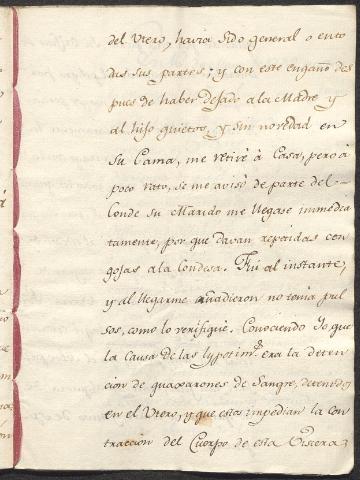 del Utero, havia sido general o en to
das sus partes; y con este engaño des
pues de haber dejado a la Madre y
al hijo quietos, y sin novedad en
su Cama, me retiré à Casa, pero à
poco rato, se me avisó de parte del
Conde su Marido me llegase inmedia
tamente, por que davan repetidas con
gojas a la Condesa. Fui al instante,
y al llegarme añadieron no tenia pul
sos, como lo verifiqué. Conociendo Yo que
la causa de las lypotim.s era la deten
cion de guaxarones de Sangre, detenidos
en el Utero, y que estos impedian la con
traccion del Cuerpo de esta Viscera;